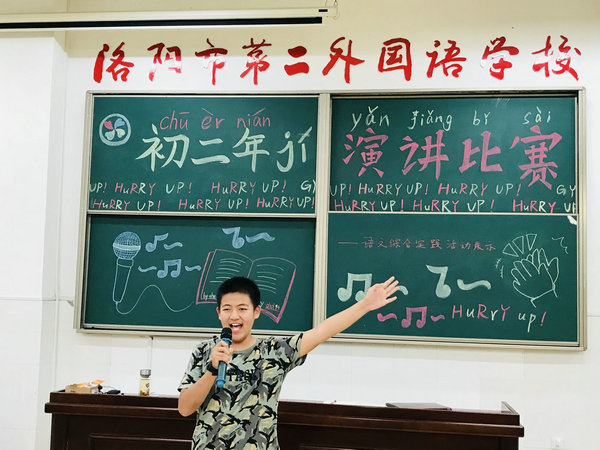 洛阳市第二外国语学校
chū èr nián
初二年jí
UP! HuRRY UP! HuRRY UP! GY
HuRRY UP! HuRRY UP! HuRRY UP!
yǎn jiǎng bǐ sài
演讲比赛
UP! HuRRY UP! HuRRY UP! GY
HuRRY UP! HuRRY UP! HuRRY UP
——语文综合实践活动展示
HuRrY up!